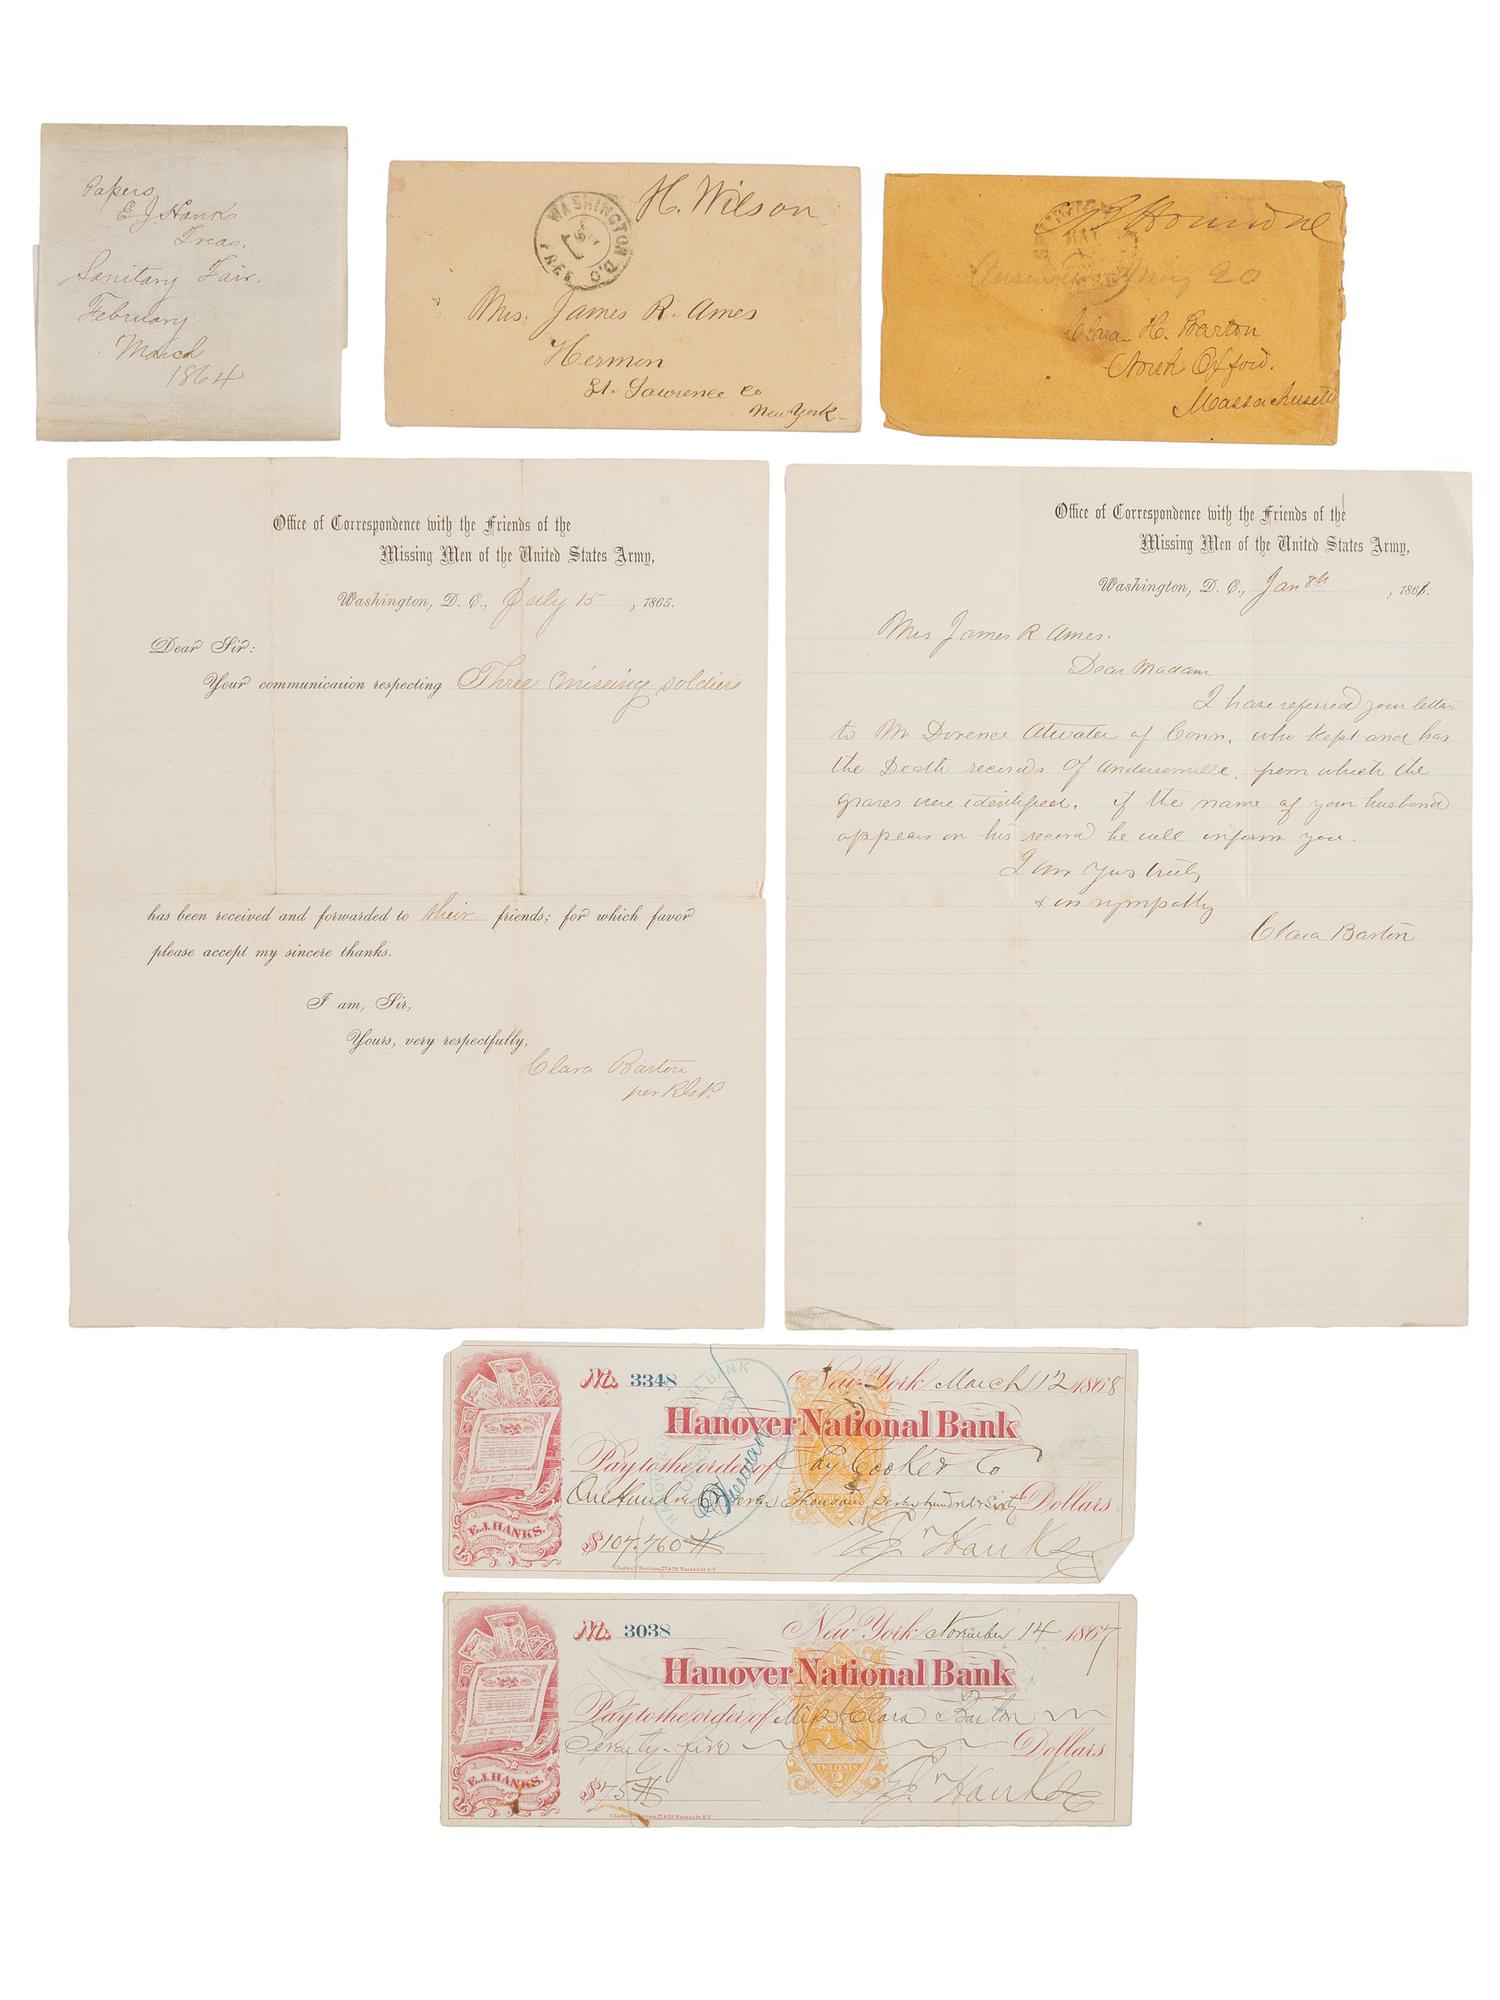 Papers
E J Hanks
Treas.
Sanitary Fair.
February
March
1864
H. Wilson
WASHINGTON D.C.
FREE
Mrs. James R. Ames
Hermon
St. Lawrence Co
New York
May 20
Clara H. Barton
North Oxford.
Massachusetts
Office of Correspondence with the Friends of the
Missing Men of the United States Army,
Washington, D. C., July 15, 1865.
Dear Sir:
Your communication respecting Three missing soldiers
has been received and forwarded to their friends; for which favor
please accept my sincere thanks.
I am, Sir,
Yours, very respectfully,
Clara Barton
per
Office of Correspondence with the Friends of the
Missing Men of the United States Army,
Washington, D. C., Jan 8th, 186
Mrs James R Ames.
Dear Madam
I have referred your letter
to Mr Dorence Atwater of Conn. who kept and has
the Death records of Andersonville, from which the
graves were identified. if the name of your husband
appears on his record he will inform you.
I am yrs truly
& in sympathy
Clara Barton
No. 3348
New York March 12 1868
Hanover National Bank
Pay to the order of Jay Cooke & Co
One Hundred Seven Thousand seven hundred & sixty Dollars
E.J. HANKS.
$107.760
E J Hanks
No. 3038
New York November 14 1867
Hanover National Bank
Pay to the order of Miss Clara Barton
Seventy-five Dollars
TWO CENTS
2
E.J. HANKS.
$75
E J Hanks